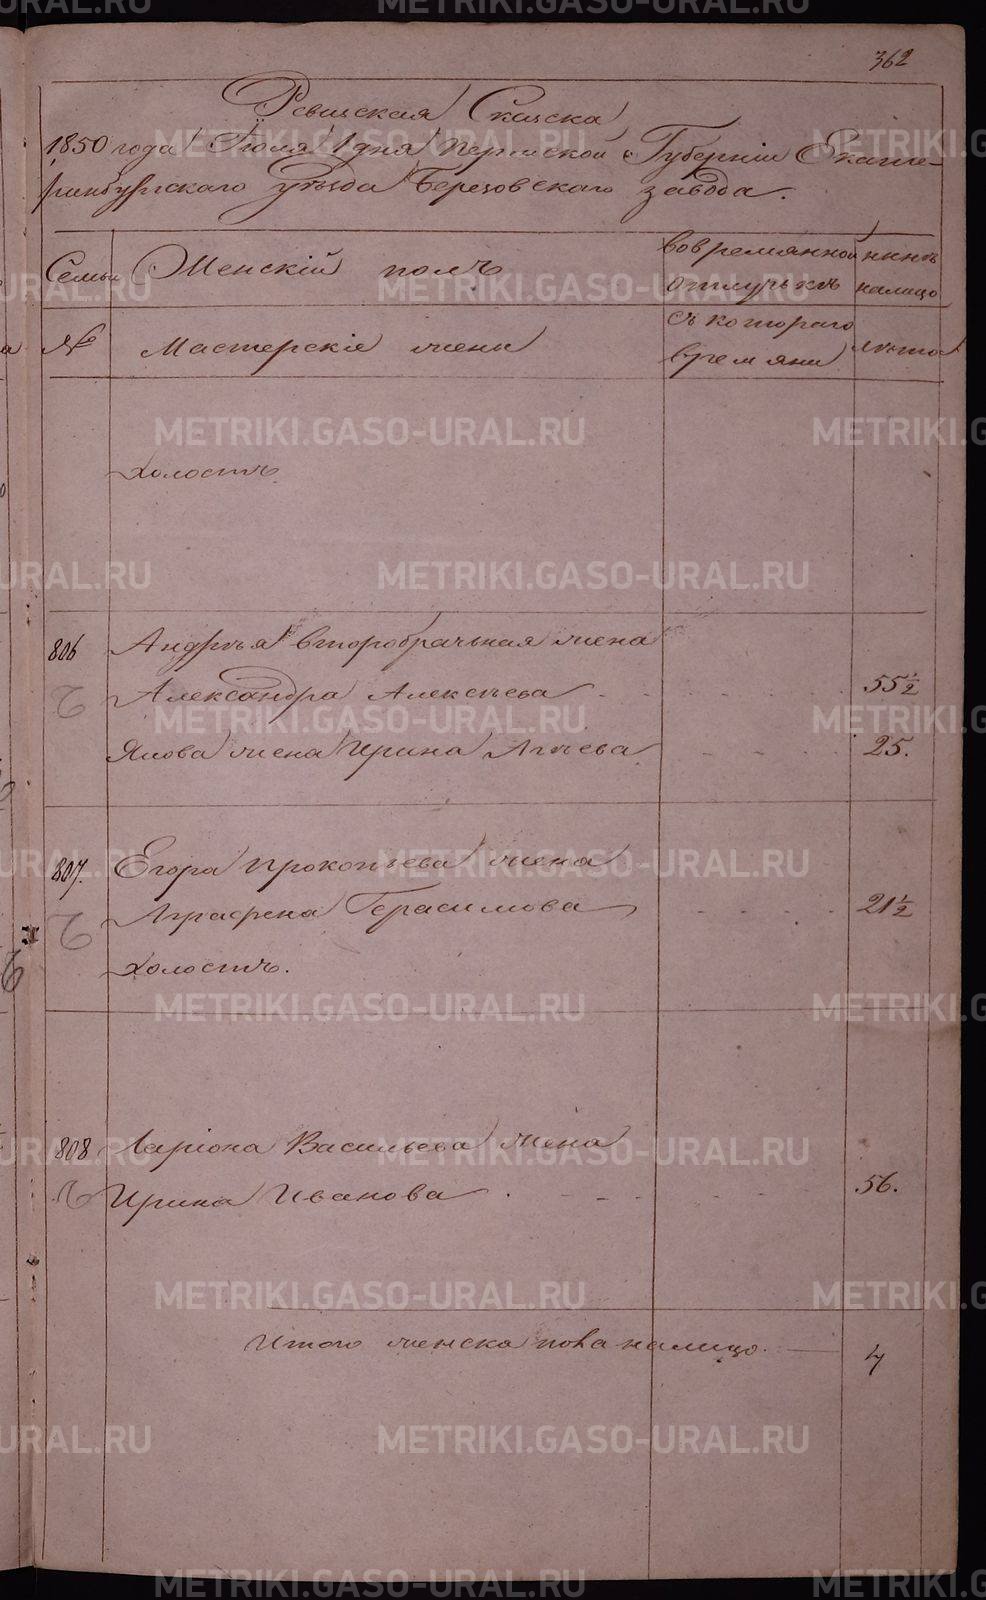 362
Ревизская Сказка
1850 года Июля 1 дня Пермской Губернiи Екате-
ринбургскаго уѣзда Березовскаго завода.
Семьи Женскiй полъ вовремянной отлучкѣ нынѣ налицо
№ Мастерскiе жены съ котораго времяни лѣта
Холостъ
806 Андрѣя второбрачьная жена
Александра Алексѣева 55 1/2
Якова жена Ирина 25.
807. Егора Прокопьева жена
Аграфена Герасимова 21 1/2
Холостъ.
808 Ларiона Васильева жена
Ирина Иванова 56.
Итого женска пола налицо. 4
METRIKI.GASO-URAL.RU